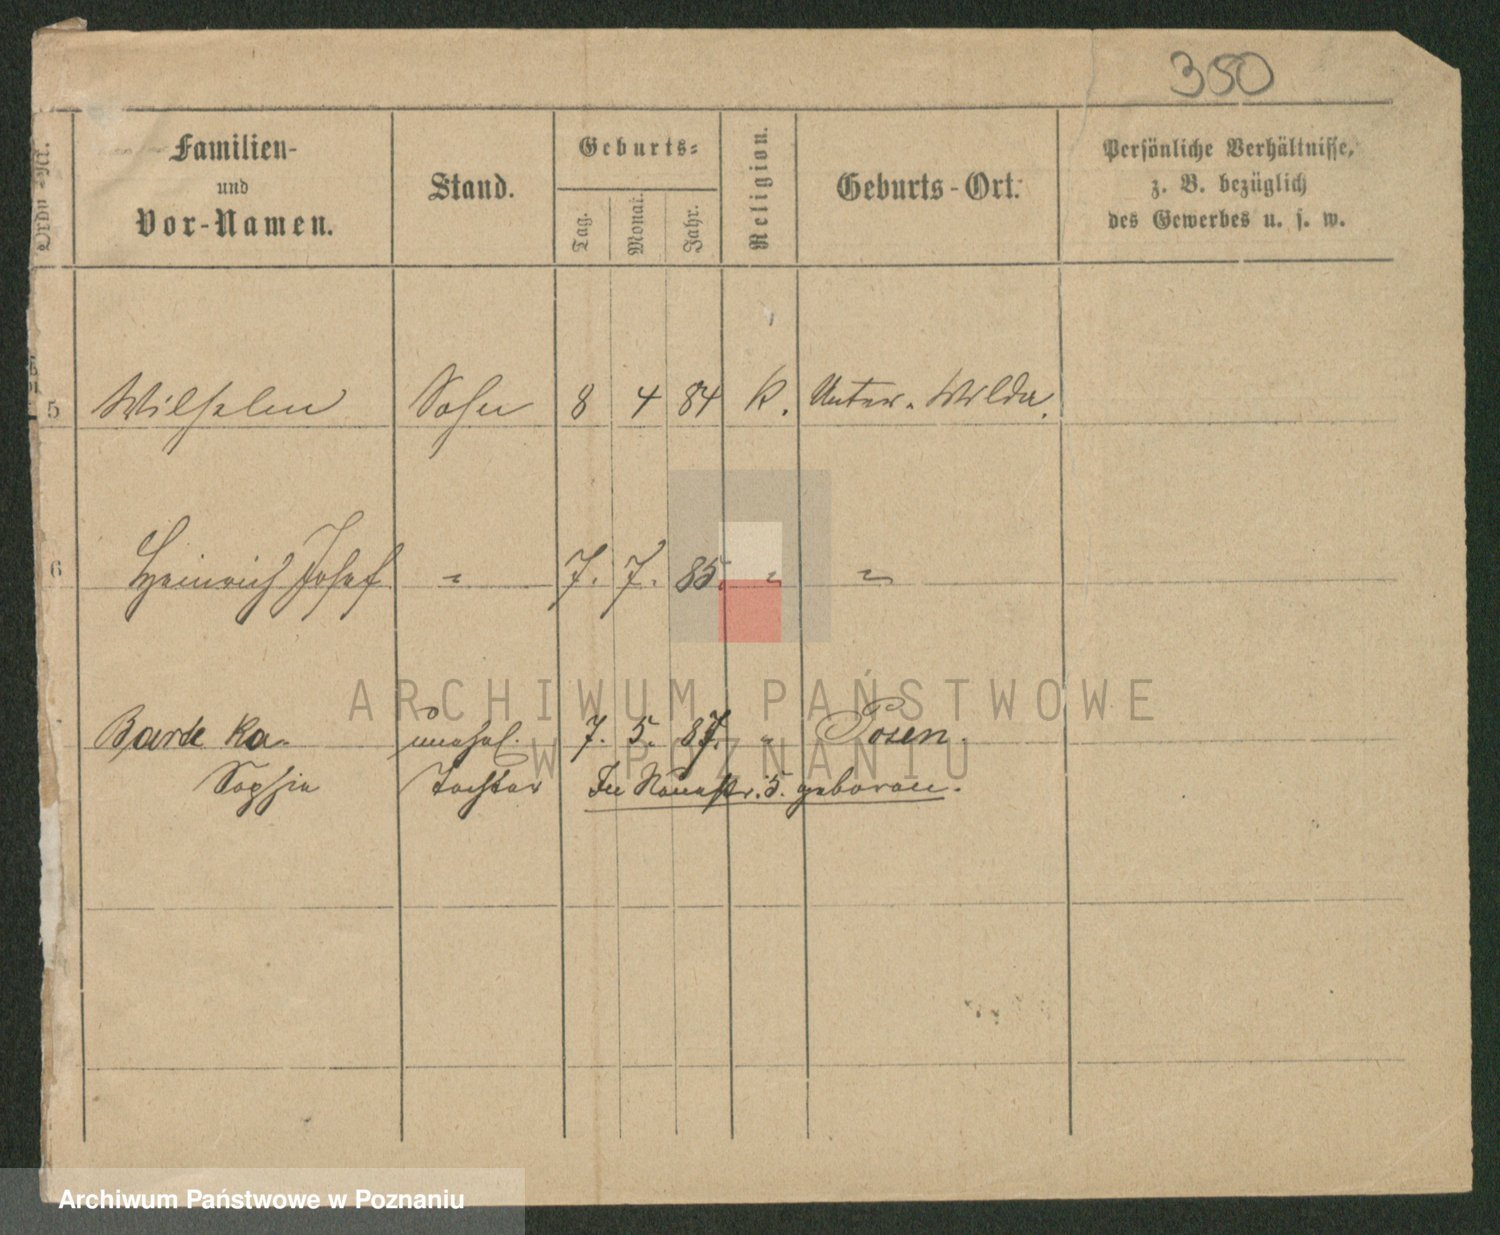 350
Ordn.-Nr.
Familien-
und
Vor-Namen.
Stand.
Geburts-
Tag.
Monat.
Jahr.
Religion.
Geburts-Ort.
Persönliche Verhältnisse,
z. B. bezüglich
des Gewerbes u. s. w.
5 Wilhelm Sohn 8 4 84 K. Unter-Wilda.
6 Heinrich Josef " 7. 7. 85. " "
unehel. 7. 5. 87. " Posen.
Sophie Tochter In geboren.
ARCHIWUM PAŃSTWOWE
W POZNANIU
Archiwum Państwowe w Poznaniu